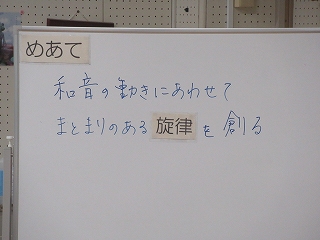 めあて
和音の動きにあわせて
まとまりのある旋律を創る